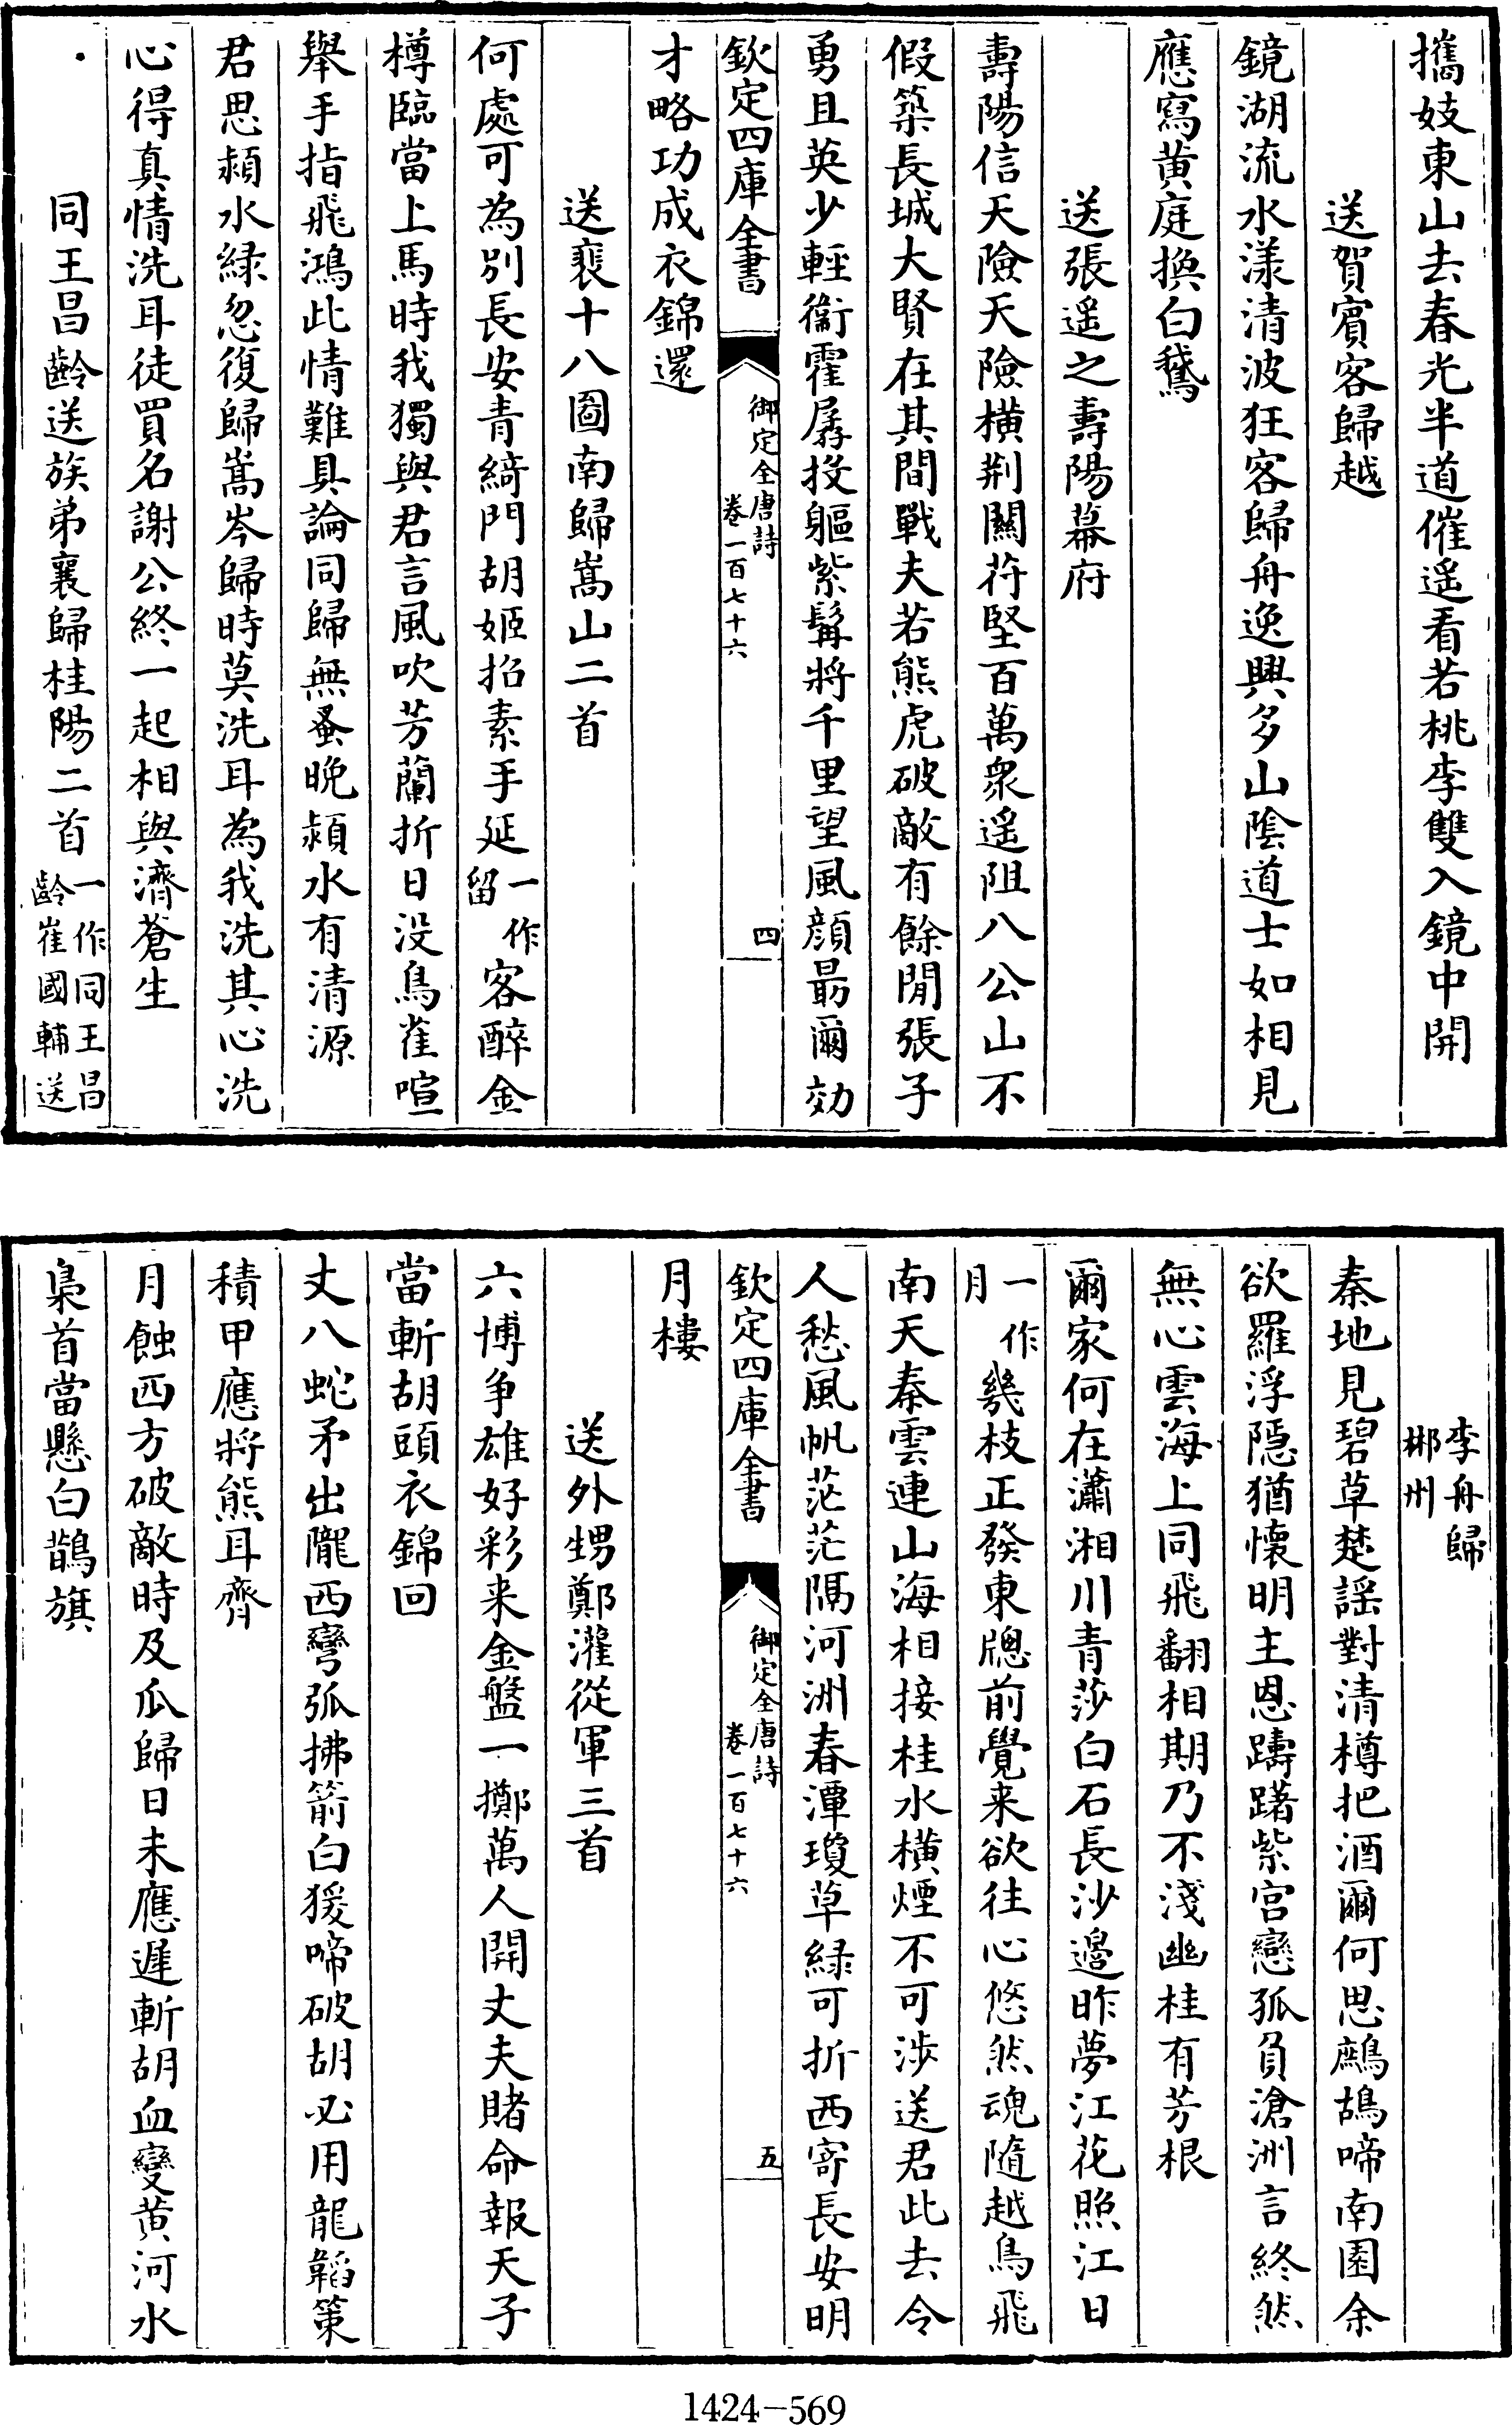 攜妓東山去春光半道催遥看若桃李雙入鏡中開
送賀賓客歸越
鏡湖流水漾清波狂客歸舟逸興多山隂道士如相見
應寫黄庭換白鵞
送張遥之壽陽幕府
壽陽信天險天險橫荆關苻堅百萬衆遥阻八公山不
假築長城大賢在其間戰夫若熊虎破敵有餘閒張子
勇且英少輕衞霍孱投軀紫髯將千里望風顔勗爾効
欽定四庫全書
御定全唐詩
卷一百七十六
四
才略功成衣錦還
送裴十八圖南歸嵩山二首
何處可為别長安青綺門胡姬招素手延一作留客醉金
樽臨當上馬時我獨與君言風吹芳蘭折日没鳥雀喧
舉手指飛鴻此情難具論同歸無蚤晚潁水有清源
君思潁水緑忽復歸嵩岑歸時莫洗耳為我洗其心洗
心得真情洗耳徒買名謝公終一起相與濟蒼生
同王昌齡送族弟襄歸桂陽二首一作同王昌齡崔國輔送
李舟歸郴州
秦地見碧草楚謡對清樽把酒爾何思鷓鴣啼南園余
欲羅浮隱猶懷明主恩躊躇紫宫戀孤負滄洲言終然
無心雲海上同飛翻相期乃不淺幽桂有芳根
爾家何在瀟湘川青莎白石長沙邊昨夢江花照江日
一作月幾枝正發東牕前覺来欲往心悠然魂隨越鳥飛
南天秦雲連山海相接桂水橫煙不可涉送君此去令
人愁風帆茫茫隔河洲春潭瓊草緑可折西寄長安明
欽定四庫全書
御定全唐詩
卷一百七十六
五
月樓
送外甥鄭灌從軍三首
六博争雄好彩来金盤一擲萬人開丈夫賭命報天子
當斬胡頭衣錦回
丈八蛇矛出隴西彎弧拂箭白猨啼破胡必用龍韜策
積甲應將熊耳齊
月蝕西方破敵時及瓜歸日未應遲斬胡血變黄河水
梟首當懸白鵲旗
1424-569